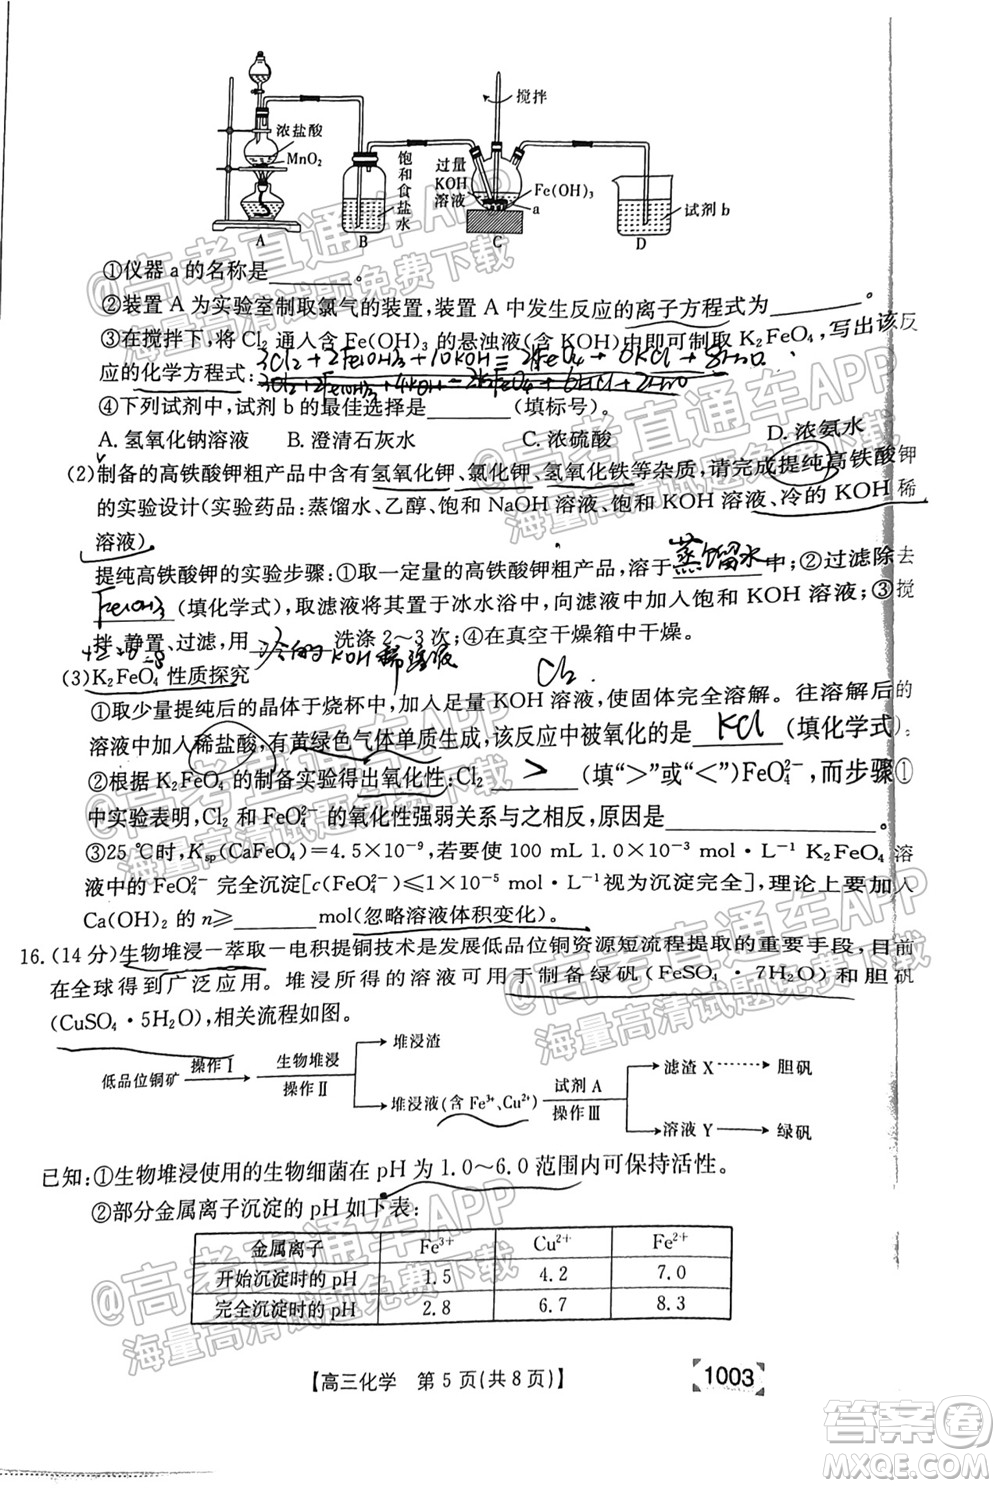 搅拌
浓盐酸
MnO₂
饱和食盐水
过量
KOH
溶液
Fe(OH)₃
a
试剂 b
A
B
C
D
①仪器 a 的名称是________。
②装置 A 为实验室制取氯气的装置,装置 A 中发生反应的离子方程式为________。
③在搅拌下,将 Cl₂ 通入含 Fe(OH)₃ 的悬浊液(含 KOH)中即可制取 K₂FeO₄,写出该反
3Cl₂+2Fe(OH)₃+10KOH=2K₂FeO₄+6KCl+8H₂O
应的化学方程式:________。
④下列试剂中,试剂 b 的最佳选择是________(填标号)。
A. 氢氧化钠溶液 B. 澄清石灰水 C. 浓硫酸 D. 浓氨水
(2)制备的高铁酸钾粗产品中含有氢氧化钾、氯化钾、氢氧化铁等杂质,请完成提纯高铁酸钾
的实验设计(实验药品:蒸馏水、乙醇、饱和 NaOH 溶液、饱和 KOH 溶液、冷的 KOH 稀
溶液)
提纯高铁酸钾的实验步骤:①取一定量的高铁酸钾粗产品,溶于蒸馏水中;②过滤除去
Fe(OH)₃(填化学式),取滤液将其置于冰水浴中,向滤液中加入饱和 KOH 溶液;③搅
拌、静置、过滤,用冷的KOH稀溶液洗涤 2～3 次;④在真空干燥箱中干燥。
(3)K₂FeO₄ 性质探究
Cl₂
①取少量提纯后的晶体于烧杯中,加入足量 KOH 溶液,使固体完全溶解。往溶解后的
溶液中加入稀盐酸,有黄绿色气体单质生成,该反应中被氧化的是KCl(填化学式)。
②根据 K₂FeO₄ 的制备实验得出氧化性:Cl₂ > (填“>”或“<”)FeO₄²⁻,而步骤①
中实验表明,Cl₂ 和 FeO₄²⁻ 的氧化性强弱关系与之相反,原因是________。
③25 ℃时,Ksp(CaFeO₄)=4.5×10⁻⁹,若要使 100 mL 1.0×10⁻³ mol·L⁻¹ K₂FeO₄ 溶
液中的 FeO₄²⁻ 完全沉淀[c(FeO₄²⁻)≤1×10⁻⁵ mol·L⁻¹视为沉淀完全],理论上要加入
Ca(OH)₂ 的 n≥________mol(忽略溶液体积变化)。
16.(14 分)生物堆浸—萃取—电积提铜技术是发展低品位铜资源短流程提取的重要手段,目前
在全球得到广泛应用。堆浸所得的溶液可用于制备绿矾(FeSO₄·7H₂O)和胆矾
(CuSO₄·5H₂O),相关流程如图。
低品位铜矿
操作Ⅰ
生物堆浸
操作Ⅱ
堆浸渣
堆浸液(含 Fe³⁺、Cu²⁺)
试剂 A
操作Ⅲ
滤渣 X
胆矾
溶液 Y
绿矾
已知:①生物堆浸使用的生物细菌在 pH 为 1.0～6.0 范围内可保持活性。
②部分金属离子沉淀的 pH 如下表:
金属离子 Fe³⁺ Cu²⁺ Fe²⁺
开始沉淀时的 pH 1.5 4.2 7.0
完全沉淀时的 pH 2.8 6.7 8.3
【高三化学 第 5 页(共 8 页)】
1003
@高考直通车APP
海量高清试题免费下载
答案卷
MXQE.COM